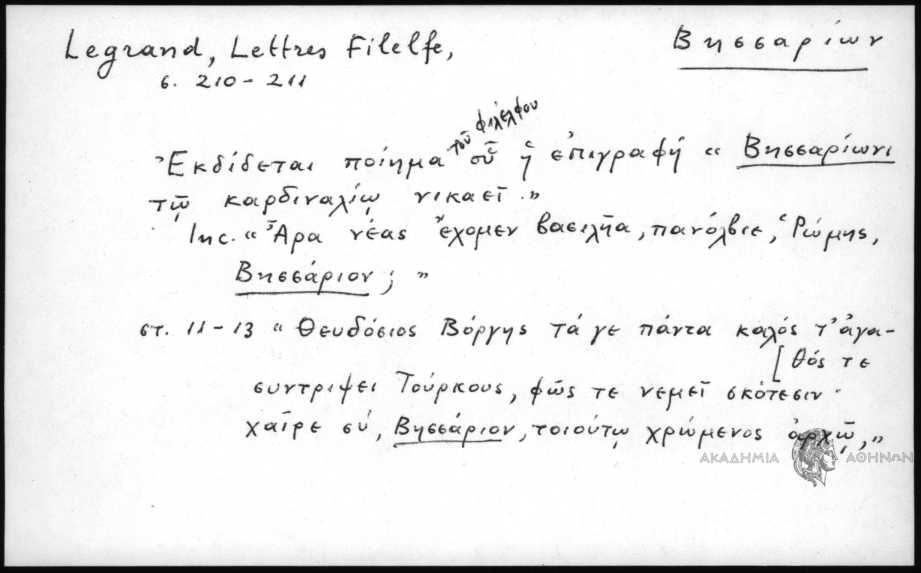 Legrand, Lettres Filelfe,
σ. 210-211
Βησσαρίων
Ἐκδίδεται ποίημα τοῦ Φιλέλφου οὗ ἡ ἐπιγραφή « Βησσαρίωνι
τῷ καρδιναλίῳ νικαεῖ. »
Inc. « Ἆρα νέας ἔχομεν βασιλῆα, πανόλβιε, Ῥώμης,
Βησσάριον; »
στ. 11-13 « Θευδόσιος Βόργης τά γε πάντα καλός τ' ἀγα-
[θός τε
συντρίψει Τούρκους, φῶς τε νεμεῖ σκότεσιν·
χαῖρε σύ, Βησσάριον, τοιούτῳ χρώμενος ἀρχῷ, »
ΑΚΑΔΗΜΙΑ ΑΘΗΝΩΝ